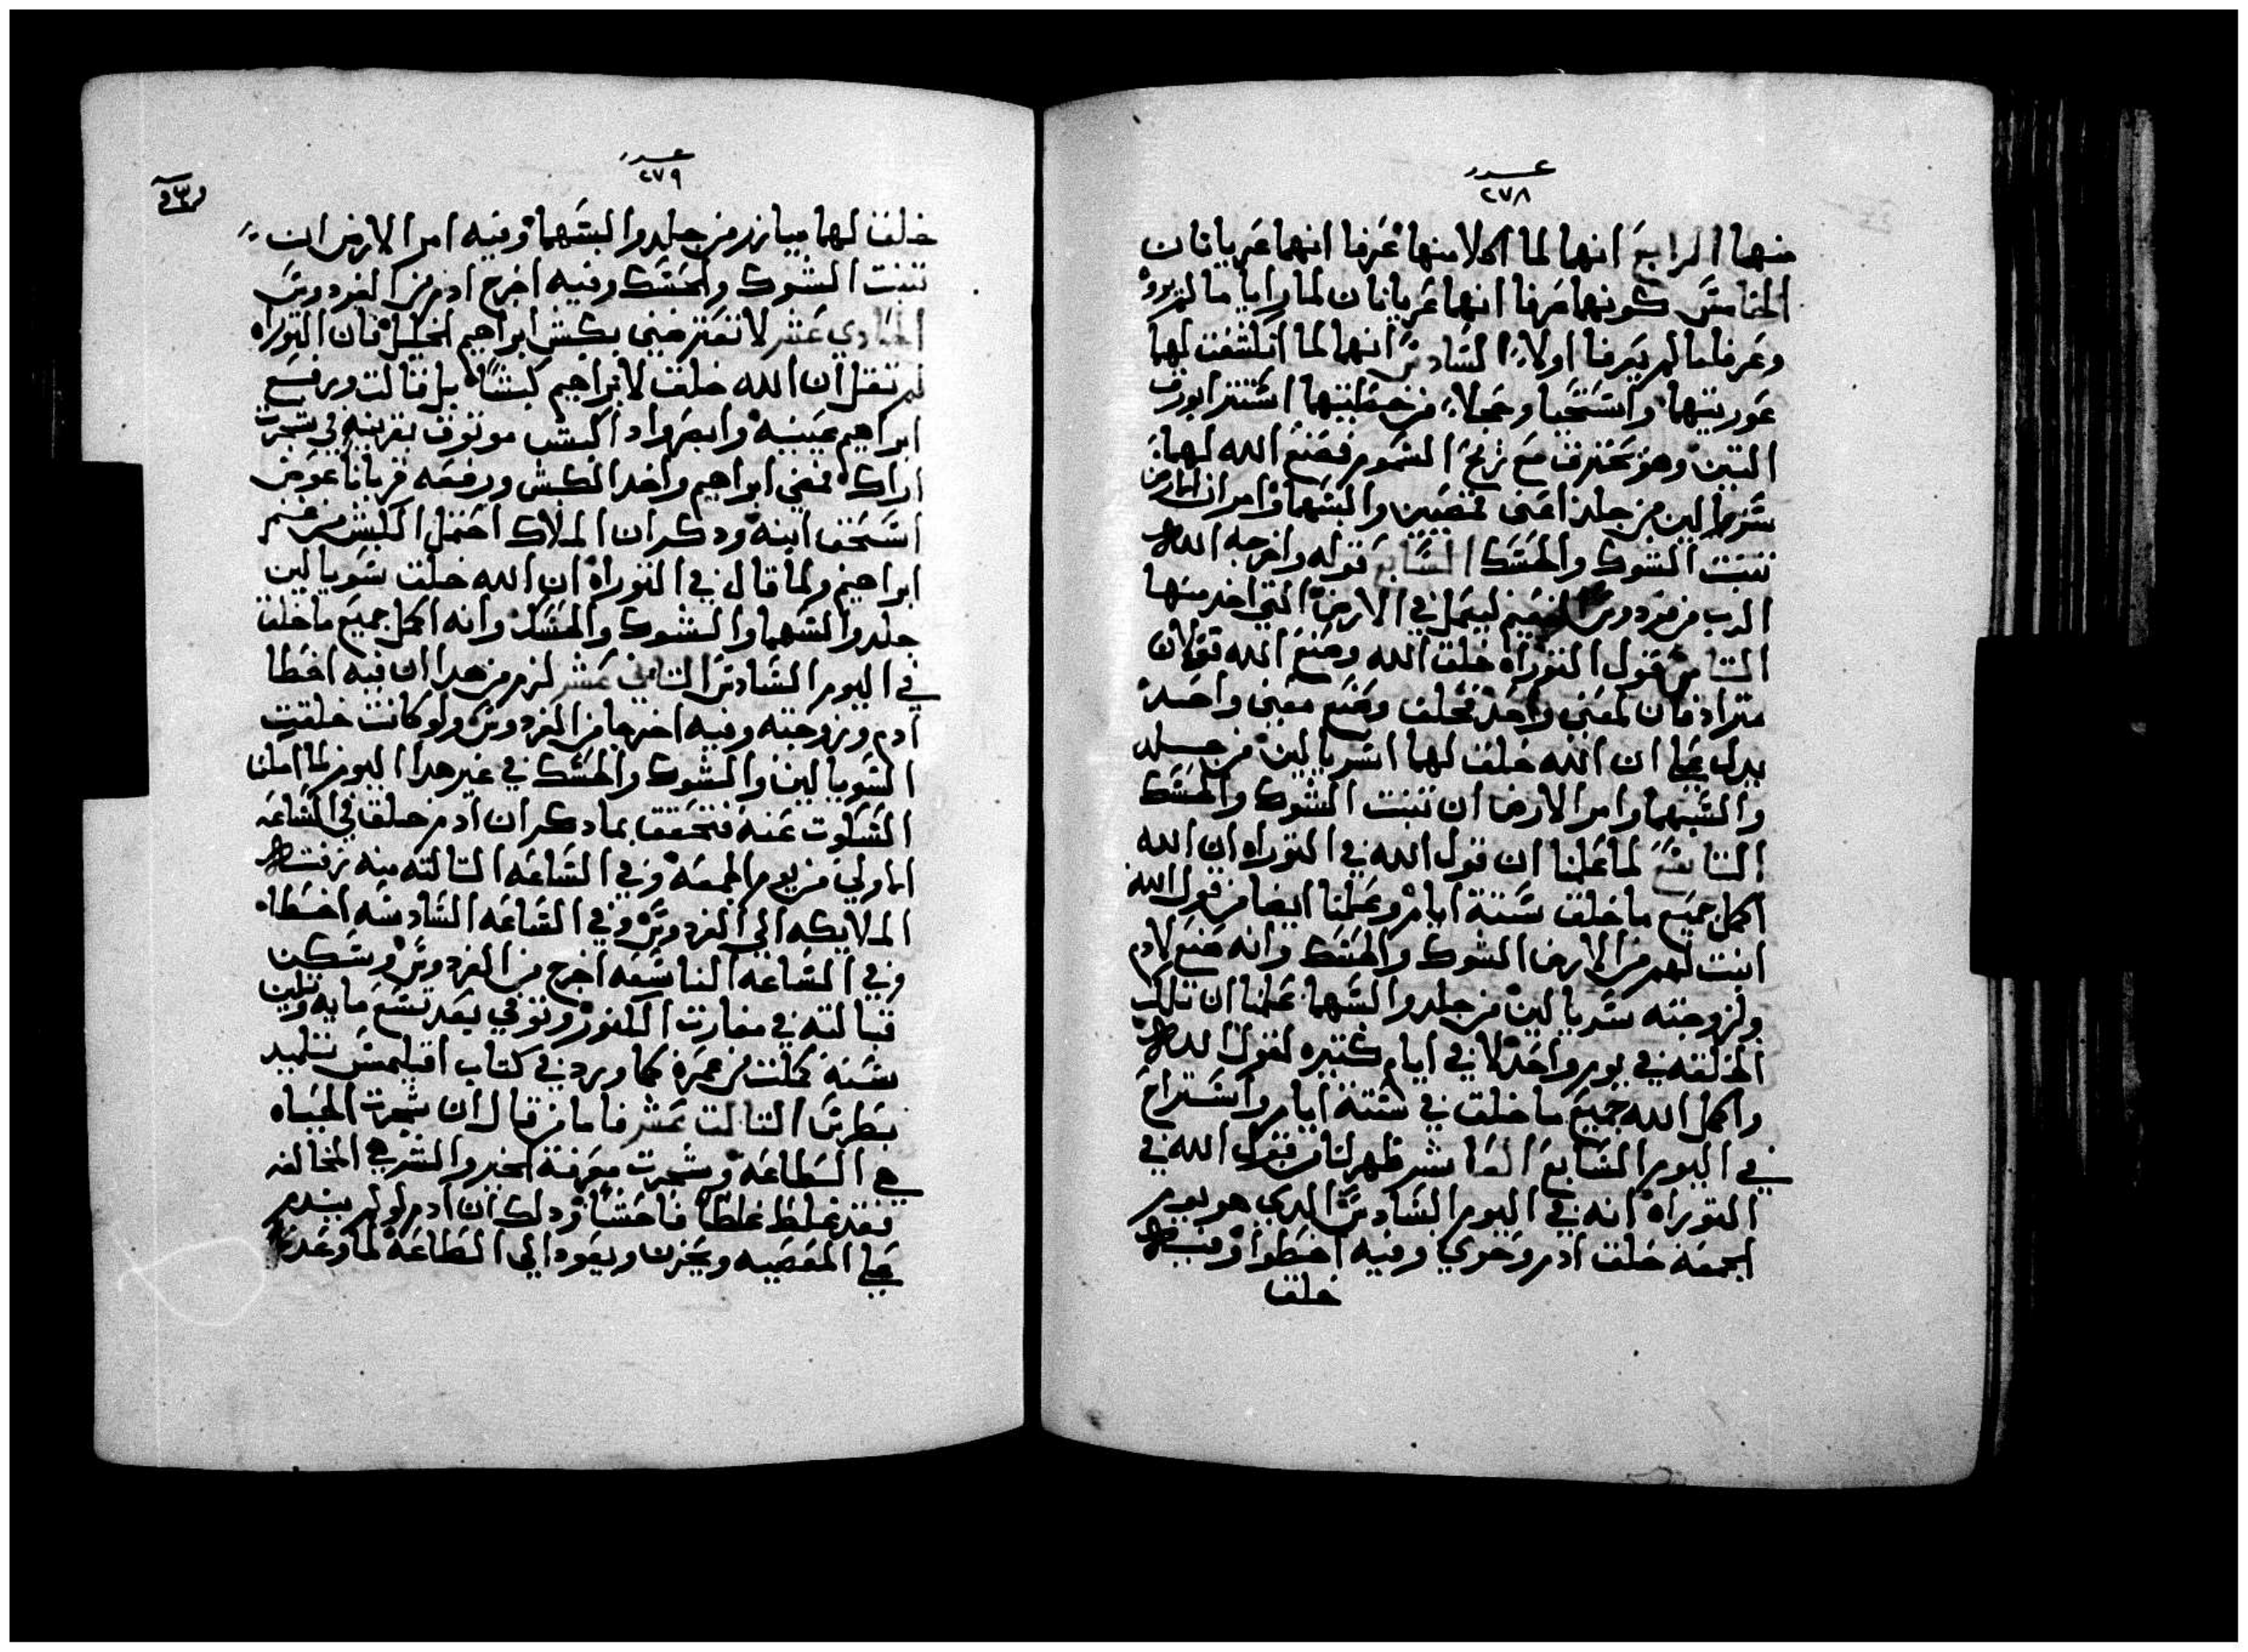 عدد
٢٧٨
منهما الرابع انهما لما اكلا منها عرفا انهما عريانان
الخامس كونهما عرفا انهما عريانان لما رايا ما لم يروا
وعرفا ما لم يعرفا اولا السادس انهما لما انكشفت لهما
عوريتهما واستحيا وخجلا من خطيتهما استترا بورق
التين وهو يحترق مع ريح السموم فصنع الله لهما
سربالين من جلد اعني قميصين والبسهما وامر ان الارض
تنبت الشوك والحسك السابع قوله واخرجه الله
الرب من فردوس النعيم ليعمل في الارض التي اخد منها
التامن قول التوراه خلق الله وصنع الله قولان
مترادفان لمعني واحد فخلق وصنع معني واحد
يدل علي ان الله خلق لهما اسربالين من جلد
والبسهما وامر الارض ان تنبت الشوك والحسك
التاسع لما علمنا ان قول الله في التوراه ان الله
اكمل جميع ما خلق ستة ايام وعلمنا ايضا من قول الله
انبت لهم من الارض الشوك والحسك وانه صنع لادم
ولزوجته سربالين من جلد والبسهما علمنا ان تلك
الخلقه في يوم واحد لا في ايام كتيره لقول الله
واكمل الله جميع ما خلق في ستة ايام واستراح
في اليوم السابع العاشر ظهر لنا من قول الله في
التوراه انه في اليوم السادس الدي هو يوم
الجمعة خلق ادم وحوي وفيه اخطوا وفيه
خلق
عدد
٢٧٩
خلق لهما ميازر من جلد والبسهما وفيه امر الارض ان
تنبت الشوك والحسك وفيه اخرج ادم من الفردوس
الحادي عشر لا تعترضني بكبش ابراهيم الخليل فان التوراه
لم تقل ان الله خلق لابراهيم كبشا بل قالت ورفع
ابراهيم عينيه وابصر واد اكبش موتوق بقرنيه في شجرت
اراك فمضي ابراهيم واخد الكبش ورفعه قربانا عوض
اسحق ابنه ودكر ان الملاك احتمل الكبش من غنم
ابراهيم ولما قال في التوراه ان الله خلق سربالين
جلد والبسهما والشوك والحسك وانه اكمل جميع ما خلق
في اليوم السادس التاني عشر لزم من هدا ان فيه اخطا
ادم وزوجته وفيه اخرجا من الفردوس ولو كانت خلقت
السربالين والشوك والحسك في غير هدا اليوم لما امكنا
السكوت عنه فتحقق بما دكر ان ادم خلق في الساعه
الاولي من يوم الجمعه وفي الساعه التالته منه زفته
الملايكه الي الفردوس وفي الساعه السادسه اخطا
وفي الساعه التاسعه اخرج من الفردوس وسكن
قبالته في مغارت الكنوز وتوفي بعد تسع مايه وتلتين
سنة كملت من عمره كما ورد في كتاب اقليمس تلميد
بطرس التالت عشر فاما من قال ان شجرت الحياه
هي الطاعه وشجرت معرفة الخير والشر هي المخالفه
فقد غلط غلطا فاحشا ودلك ان ادم لو لم يندم
علي المعصيه ويحزن ويعود الي الطاعة لما وعده